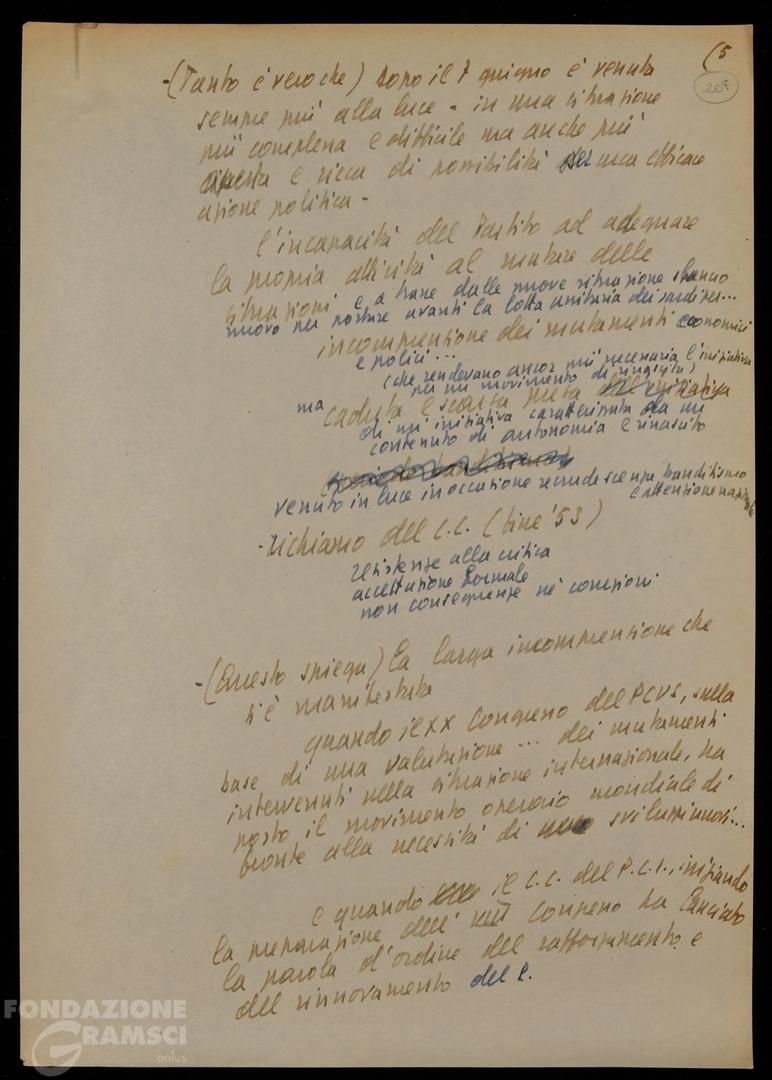 (5
207
-(Tanto è vero che) dopo il 7 giugno è venuta
sempre più alla luce - in una situazione
più complessa e difficile ma anche più
aperta e ricca di possibilità per una efficace
azione politica -
l'incapacità del Partito ad adeguare
la propria attività al mutare delle
situazioni e a trarre dalle nuove situazione
nuovo per portare avanti la lotta unitaria dei sardi per...
incomprensione dei mutamenti economici
e politici...
(che rendevano ancor più necessaria l'iniziativa
per un movimento di rinascita)
ma caduta e scarsa iniziativa
di un' iniziativa caratterizzata da un
contenuto di autonomia e rinascita
venuto in luce in occasione recrudescenza banditismo
e attenzione nazionale
- richiamo del C.C. (fine '53)
resistenze alla critica
accettazione formale
non conseguenze nè correzioni
-(Questo spiega) la larga incomprensione che
s'è manifestata
quando il XX Congresso del PCUS, sulla
base di una valutazione ... dei mutamenti
intervenuti nella situazione internazionale, ha
posto il movimento operaio mondiale di
fronte alla necessità di sviluppi nuovi...
e quando il C.C. del P.C.I., iniziando
la preparazione dell' VIII Congresso ha lanciato
la parola d'ordine del rafforzamento e
del rinnovamento del P.
FONDAZIONE
GRAMSCI
onlus